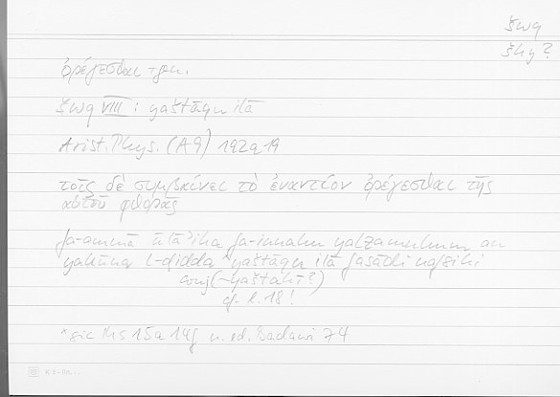 šwq
šhy?
ὀρέγεσθαι +gen.
šwq VIII : yaštāqu ilā
Arist. Phys. (A 9) 192a19
τοῖς δὲ συμβαίνει τὸ ἐναντίον ὀρέγεσθαι τῆς
αὑτοῦ φθορᾶς
fa-ammā ūlāʾika fa-innahu yalzamuhum an
yakūna l-ḍiddu *yaštāqu ilā fasādi nafsihi
conj. (~yaštahī?)
cf. l. 18!
*sic Ms 15a 14f u. ed. Badawi 74